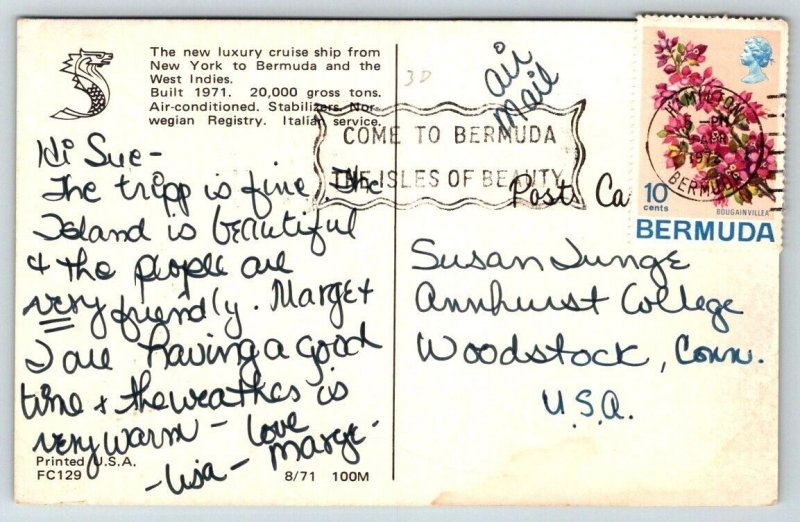 The new luxury cruise ship from
New York to Bermuda and the
West Indies.
Built 1971. 20,000 gross tons.
Air-conditioned. Stabilizers. Nor-
wegian Registry. Italian service.
3D
air
mail
COME TO BERMUDA
THE ISLES OF BEAUTY
HAMILTON
PM
BERMUDA
10
cents
BOUGAINVILLEA
BERMUDA
Post Ca
Hi Sue-
The tripp is fine. The
Island is beautiful
& the people are
very friendly. Marge &
I are having a good
time & the weather is
very warm - love
-Lisa - Marge-
Susan Junge
Annhurst College
Woodstock, Conn.
U.S.A.
Printed U.S.A.
FC129
8/71 100M